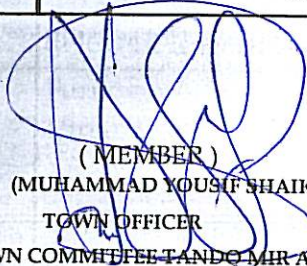 ( MEMBER )
(MUHAMMAD YOUSIF SHAIK
TOWN OFFICER
WN COMMITTEE TANDO MIR A